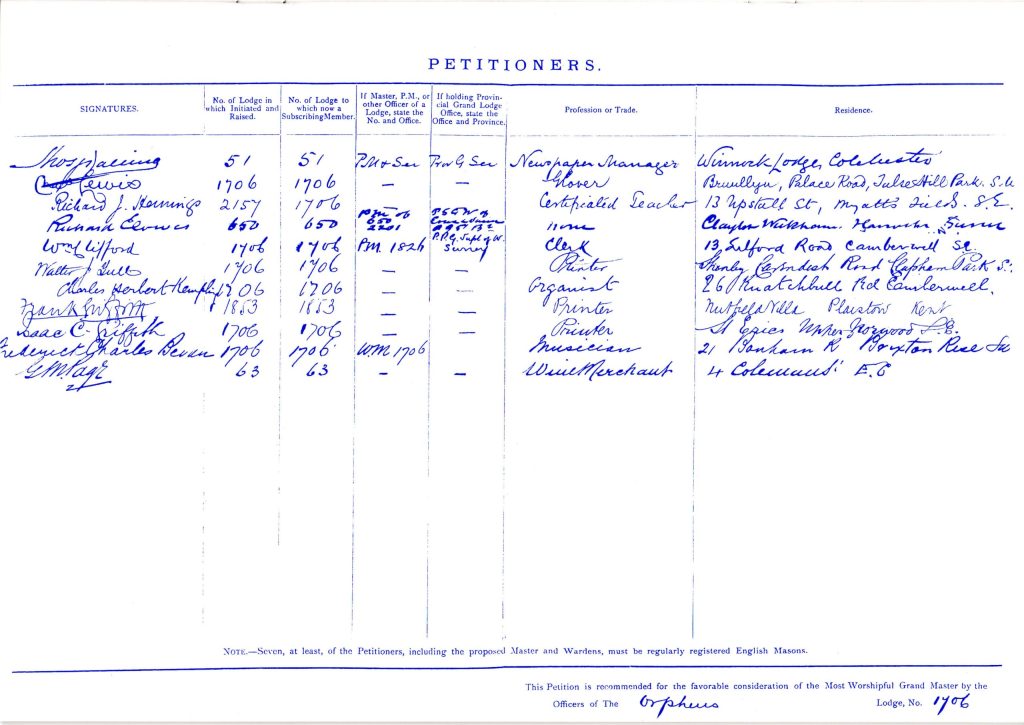 PETITIONERS.
SIGNATURES. No. of Lodge in which Initiated and Raised. No. of Lodge to which now a Subscribing Member. If Master, P.M., or other Officer of a Lodge, state the No. and Office. If holding Provincial Grand Lodge Office, state the Office and Province. Profession or Trade. Residence.
51 51 P.M & Sec Prov G Sec Newspaper Manager Winnock Lodge, Colchester
Lewis 1706 1706 — — Glover Palace Road, Tulse Hill Park. S.W
Richard J. Hennings 2157 1706 — Certificated Teacher 13 Upstall St, Myatts Fields. S.E.
Richard Clowes 650 650 P.M of 650 2201 none Clayton
Wm Clifford 1706 1706 P.M. 1826 P.P.G. Supt of W. Surrey Clerk 13 Telford Road Camberwell
Walter 1706 1706 — — Printer Cavendish Road Clapham Park
Charles Herbert 1706 1706 — — Organist 26 Knatchbull Rd Camberwell.
Frank 1853 1853 — — Printer Nutfield Villa Plaistow Kent
Isaac C. Griffith 1706 1706 — — Printer Upper Norwood S.E.
Frederick Charles Bevan 1706 1706 WM 1706 — Musician 21 Bonham R Brixton Rise SW
G.M. Page 63 63 — — Wine Merchant 4 E.C
NOTE.—Seven, at least, of the Petitioners, including the proposed Master and Wardens, must be regularly registered English Masons.
This Petition is recommended for the favorable consideration of the Most Worshipful Grand Master by the
Officers of The Orpheus Lodge, No. 1706